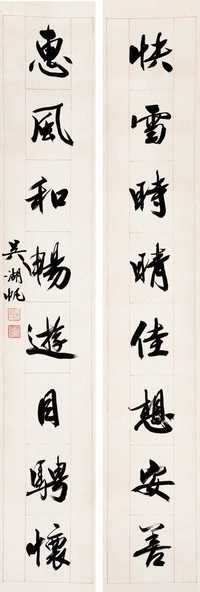 快雪時晴佳想安善
惠風和暢遊目騁懷
吳湖帆